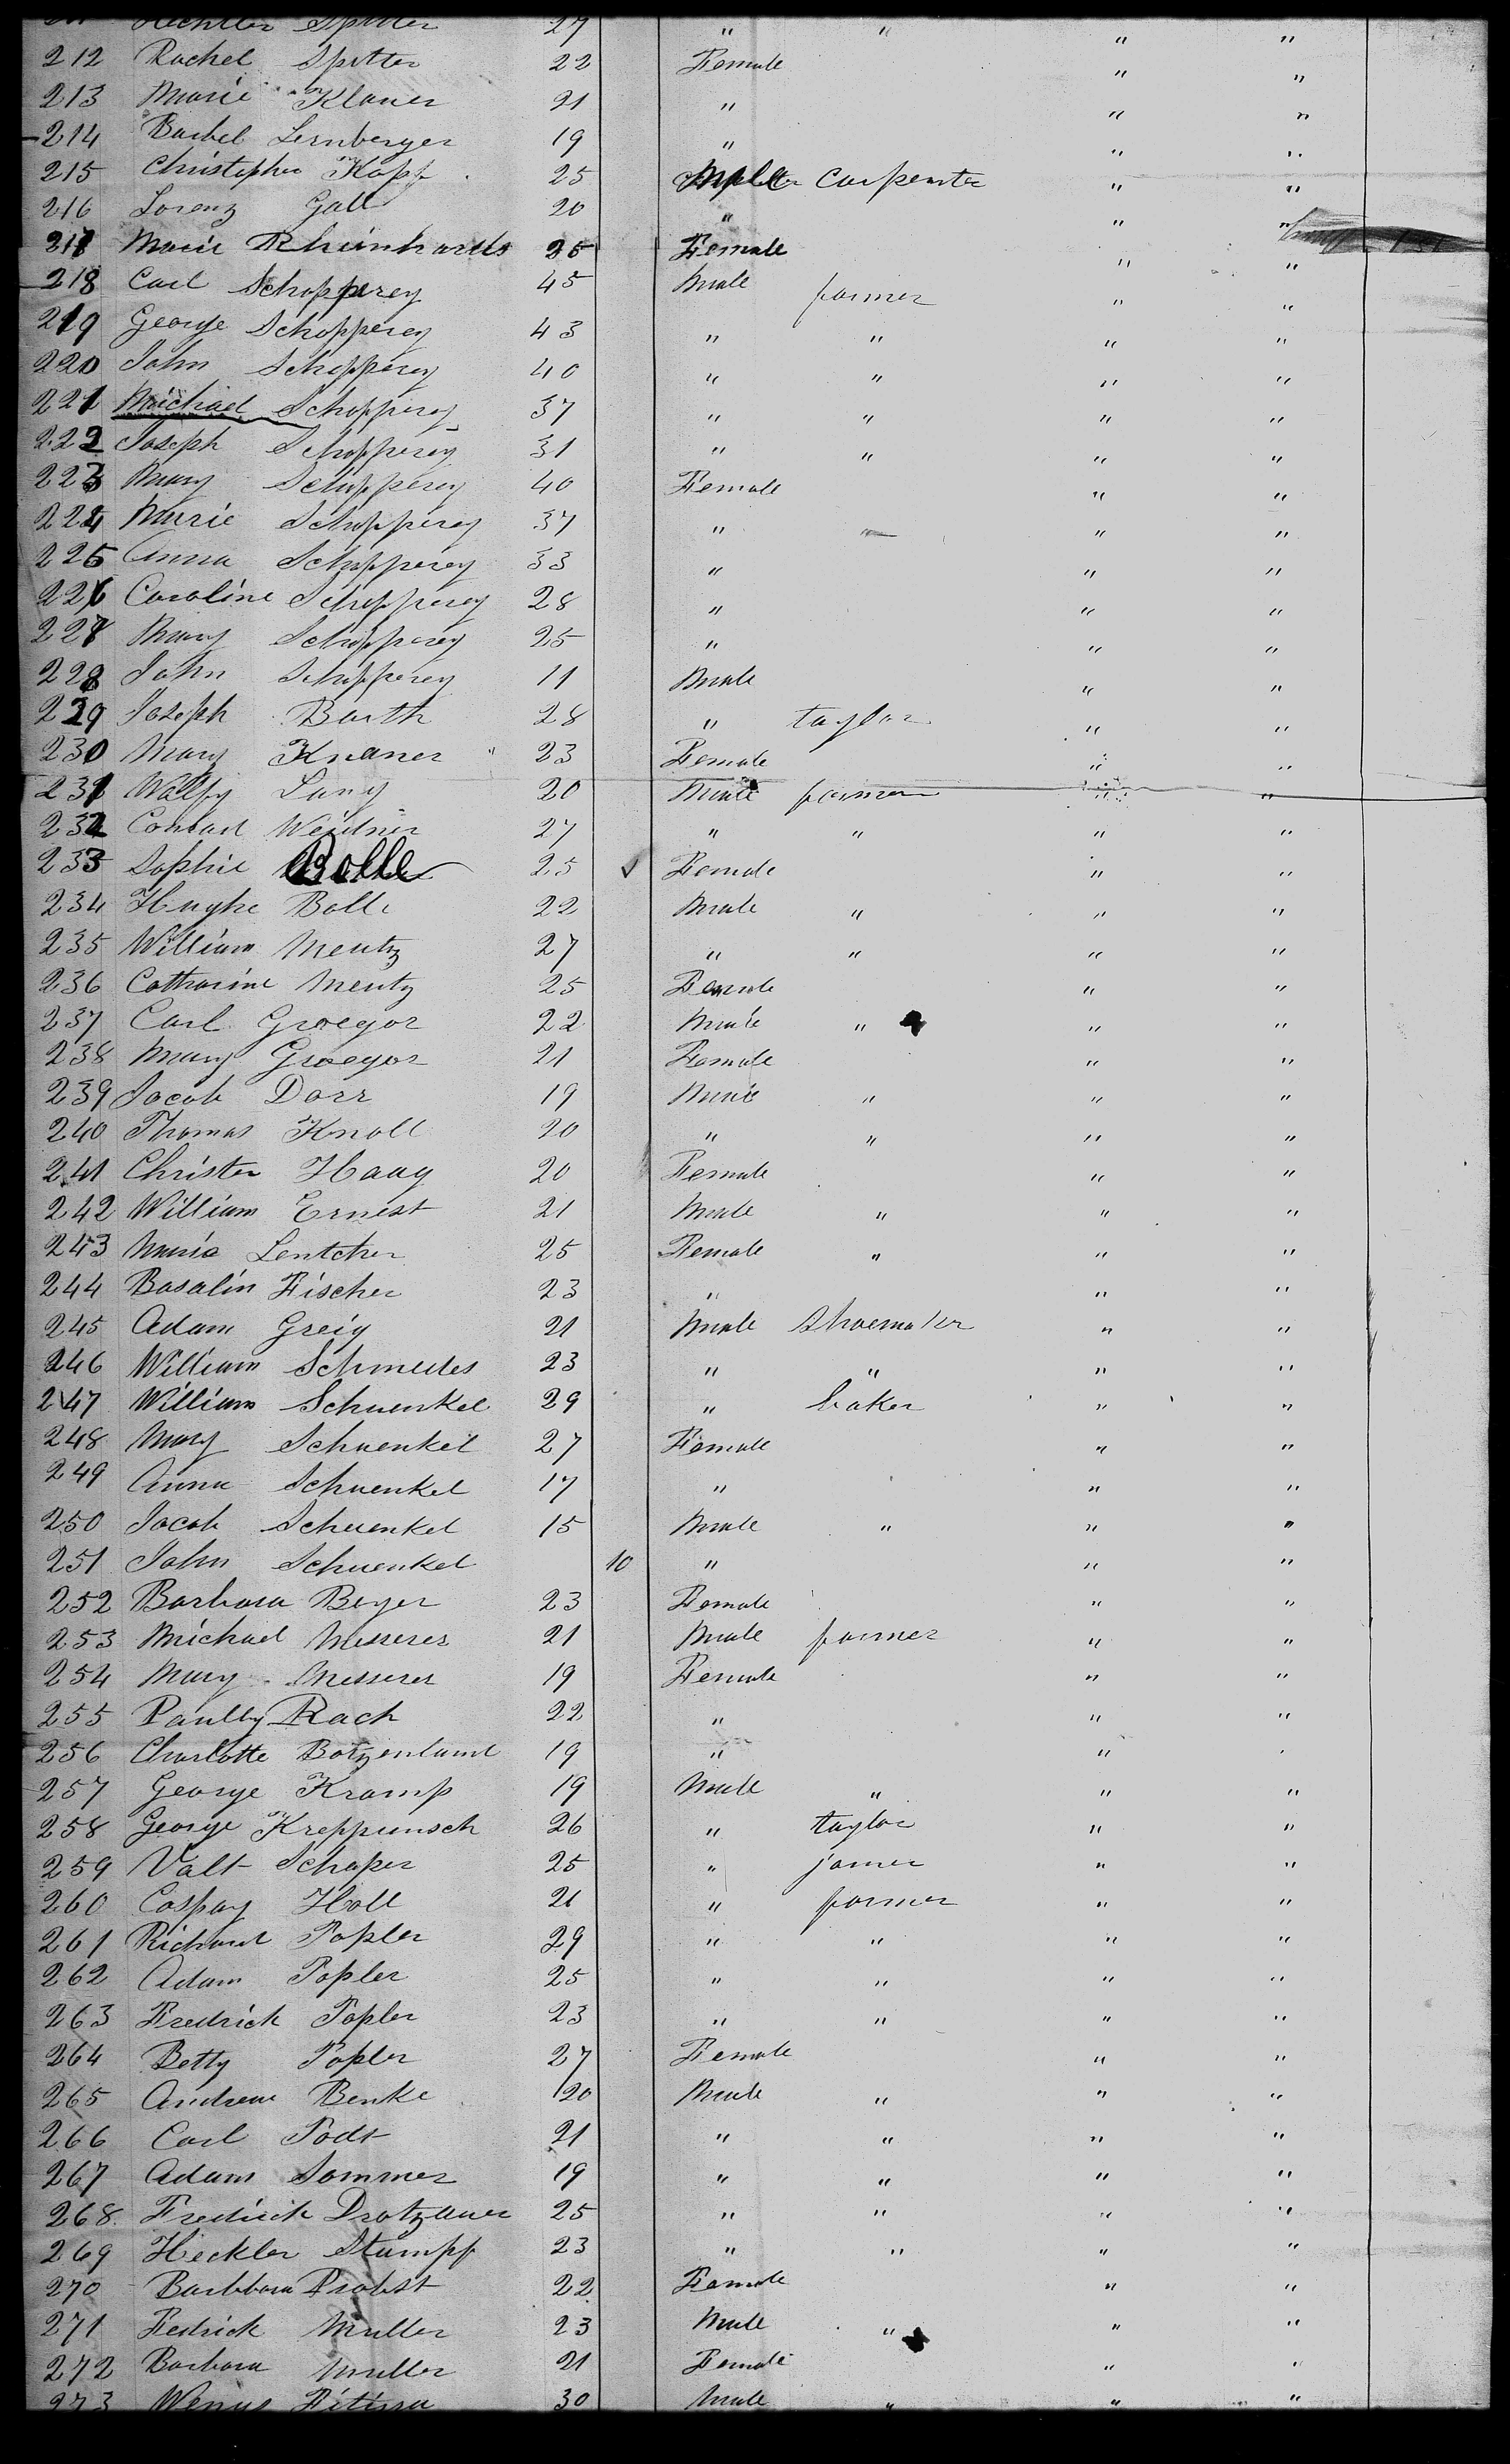 Spitter 27 " " " "
212 Rachel Spitter 22 Female " "
213 Marie Klauer 21 " " "
214 Barbel Lernberger 19 " " "
215 Christopher Kopf 25 Male Carpenter " "
216 Lorenz Gall 20 " " "
217 Marie Rheinhardts 25 Female " "
218 Carl Schopperey 45 Male farmer " "
219 George Schopperey 43 " " " "
220 John Schopperey 40 " " " "
221 Michael Schopperey 37 " " " "
222 Joseph Schopperey 31 " " " "
223 Mary Schopperey 40 Female " "
224 Marie Schopperey 37 " " "
225 Anna Schopperey 33 " " "
226 Caroline Schopperey 28 " " "
227 Mary Schopperey 25 " " "
228 John Schopperey 11 Male " "
229 Joseph Barth 28 " taylor " "
230 Mary Knaner 23 Female " "
231 Lang 20 Male farmer " "
232 Conrad Weidner 27 " " " "
233 Sophie Bolle 25 Female " "
234 Hughe Bolle 22 Male " " "
235 William Mentz 27 " " " "
236 Catharine Mentz 25 Female " "
237 Carl Groegor 22 Male " " "
238 Mary Groegor 21 Female " "
239 Jacob Dorr 19 Male " " "
240 Thomas Knoll 20 " " " "
241 Christen Haag 20 Female " "
242 William Ernest 21 Male " " "
243 Maria Lentcher 25 Female " " "
244 Basalin Fischer 23 " " "
245 Adam Greig 21 Male Shoemaker " "
246 William Schmedes 23 " " " "
247 William Schuenkel 29 " baker " "
248 Mary Schuenkel 27 Female " "
249 Anna Schuenkel 17 " " "
250 Jacob Schuenkel 15 Male " " "
251 John Schuenkel 10 " " "
252 Barbara Beyer 23 Female " "
253 Michael Messerer 21 Male farmer " "
254 Mary Messerer 19 Female " "
255 Paully Rach 22 " " "
256 Charlotte Botzenlamt 19 " "
257 George Kramp 19 Male " " "
258 George Kreppunsch 26 " taylor " "
259 Valt Schaper 25 " joiner " "
260 Caspay Holl 21 " farmer " "
261 Richard Popler 29 " " " "
262 Adam Popler 25 " " " "
263 Fredrick Popler 23 " " " "
264 Betty Popler 27 Female " "
265 Andrew Benke 20 Male " " "
266 Carl Podt 21 " " " "
267 Adam Sommer 19 " " " "
268 Fredrick Drotzauer 25 " " " "
269 Heckler Stumpf 23 " " " "
270 Barbbara Probst 22 Female " "
271 Fedrick Muller 23 Male " " "
272 Barbara Muller 21 Female " "
273 30 Male " " "